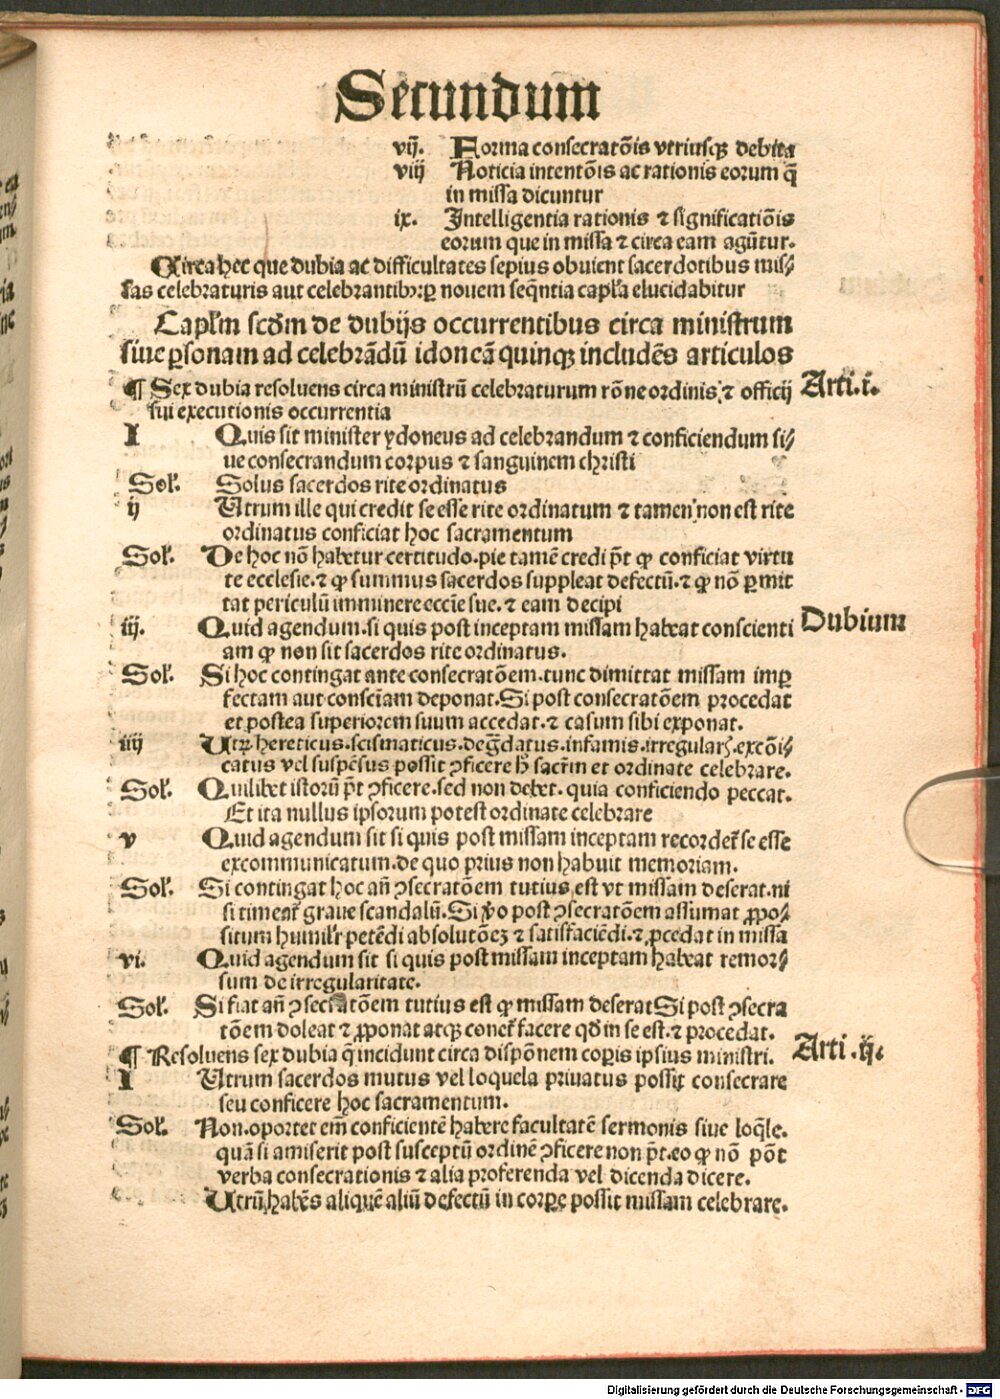 Secundum
vij. Forma consecratōis vtriusqꝫ debita
viij Noticia intentōis ac rationis eorum q̄
in missa dicuntur
ix. Intelligentia rationis ⁊ significatiōis
eorum que in missa ⁊ circa eam agūtur.
Circa hec que dubia ac difficultates sepius obuient sacerdotibus mis⸗
sas celebraturis aut celebrantibꝰ: ꝑ nouem seq̄ntia capl'a elucidabitur
Capl'm scdm de dubijs occurrentibus circa ministrum
siue ꝑsonam ad celebrādū idoneā quinqꝫ includēs articulos
¶ Sex dubia resoluens circa ministrū celebraturum rōne ordinis ⁊ officij Arti.i.
sui executionis occurrentia
I Quis sit minister ydoneus ad celebrandum ⁊ conficiendum si⸗
ue consecrandum corpus ⁊ sanguinem christi
Sol'. Solus sacerdos rite ordinatus
ij Utrum ille qui credit se esse rite ordinatum ⁊ tamen non est rite
ordinatus conficiat hoc sacramentum
Sol'. De hoc nō habetur certitudo. pie tamē credi pōt ꝙ conficiat virtu
te ecclesie. ⁊ ꝙ summus sacerdos suppleat defectū. ⁊ ꝙ nō ꝑmit
tat periculū imminere eccīe sue. ⁊ eam decipi
iij. Quid agendum. si quis post inceptam missam habeat conscienti Dubium
am ꝙ non sit sacerdos rite ordinatus.
Sol'. Si hoc contingat ante consecratōem. tunc dimittat missam imꝑ
fectam aut consciam deponat. Si post consecratōem procedat
et postea superiorem suum accedat. ⁊ casum sibi exponat.
iiij Utrꝫ hereticus. scismaticus. degdatus. infamis. irregularꝭ. excōi⸗
catus vel suspēsus possit ꝯficere h̄ sacrm̄ et ordinate celebrare.
Sol'. Quilibet istorū pōt ꝯficere. sed non debet. quia conficiendo peccat.
Et ita nullus ipsorum potest ordinate celebrare
v Quid agendum sit si quis post missam inceptam recordet' se esse
excommunicatum. de quo prius non habuit memoriam.
Sol'. Si contingat hoc añ ꝯsecratōem tutius est vt missam deserat. ni
si timeat' graue scandalū. Si v̄o post ꝯsecratōem assumat ꝓpo⸗
situm humil'r petēdi absolutōeꝫ ⁊ satisfaciēdi. ⁊ ꝓcedat in missa
vi. Quid agendum sit si quis post missam inceptam habeat remor⸗
sum de irregularitate.
Sol'. Si fiat añ ꝯsecratōem tutius est ꝙ missam deserat Si post ꝯsecra
tōem doleat ⁊ ꝓponat atqꝫ conet' facere qd̄ in se est. ⁊ procedat.
¶ Resoluens sex dubia q̄ incidunt circa dispōnem corꝑis ipsius ministri. Arti.ij.
I Utrum sacerdos mutus vel loquela priuatus possit consecrare
seu conficere hoc sacramentum.
Sol'. Non. oportet em̄ conficientē habere facultatē sermonis siue loq̄le.
quā si amiserit post susceptū ordinē ꝯficere non pōt. eo ꝙ nō pōt
verba consecrationis ⁊ alia proferenda vel dicenda dicere.
Utrū habēs aliquē aliū defectū in corpe possit missam celebrare.
Digitalisierung gefördert durch die Deutsche Forschungsgemeinschaft - DFG